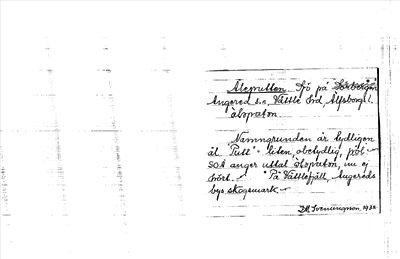 Äleputten. Sjö på
Angered sn, Vättle hd, Älfsborgs l.
Namngrunden är tydligen
ål "Putt" = liten, obetydlig, pöl.
SOA anger uttal åleputen, nu ej
hört. På Vättlefjäll, Angereds
bys skogsmark.
D. Svenungsson 1932